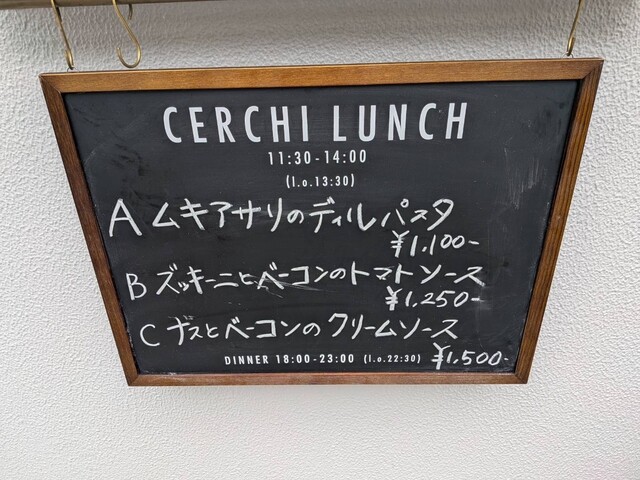 CERCHI LUNCH
11:30-14:00
(l.o.13:30)
A ムキアサリのディルパスタ
¥1,100-
B ズッキーニとベーコンのトマトソース
¥1,250-
C ナスとベーコンのクリームソース
¥1,500-
DINNER 18:00-23:00 (l.o.22:30)